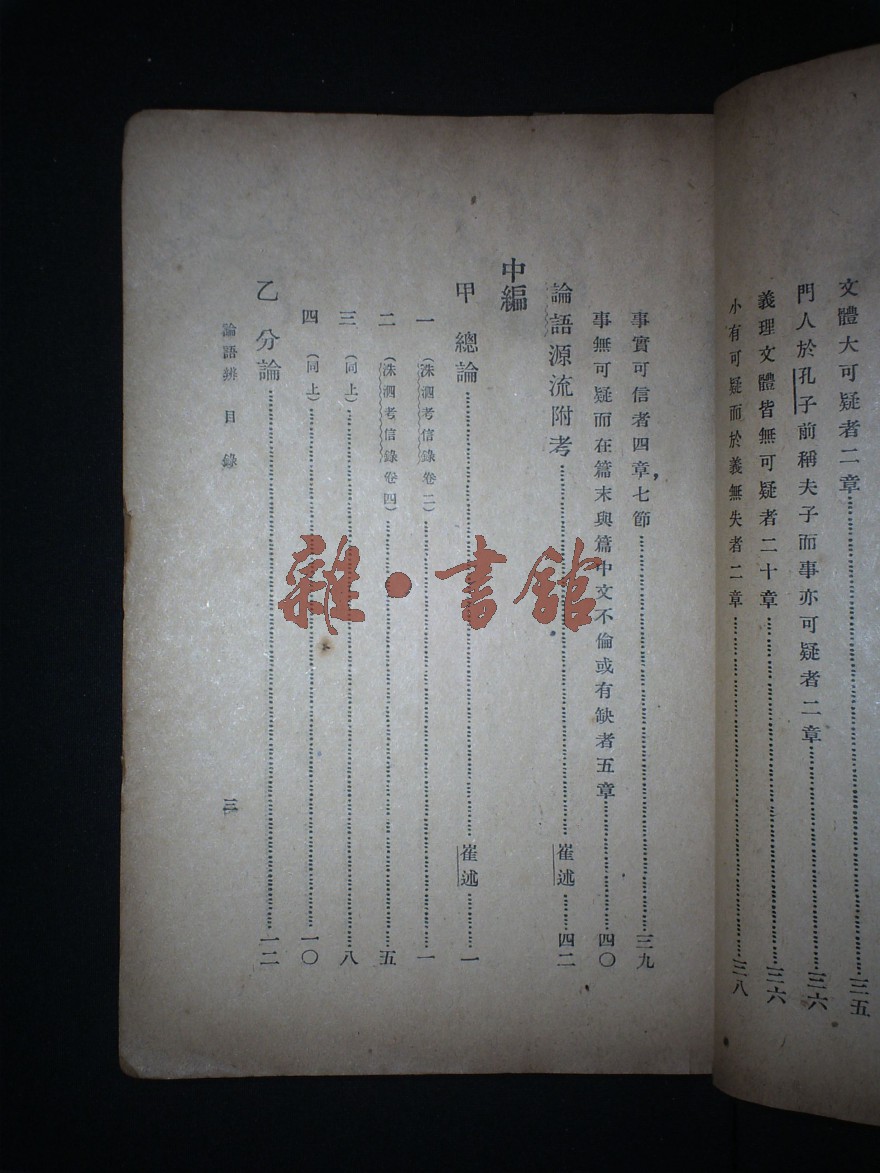 文體大可疑者二章……三五
門人於孔子前稱夫子而事亦可疑者二章……三六
義理文體皆無可疑者二十章……三六
小有可疑而於義無失者二章……三八
事實可信者四章，七節……三九
事無可疑而在篇末與篇中文不倫或有缺者五章……四〇
論語源流附考……崔述……四二
中編
甲 總論……崔述……一
一（洙泗考信錄卷二）……一
二（洙泗考信錄卷四）……五
三（同上）……八
四（同上）……一〇
乙 分論……一二
論語辨 目錄 三
雜·書館